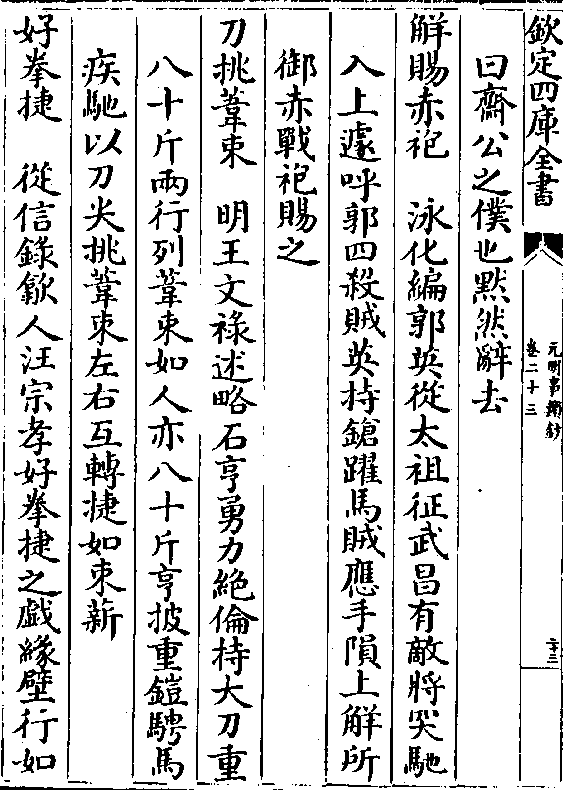 欽定四庫全書
元明事類鈔
卷二十三
二十三
曰齋公之僕也黙然辭去
觧賜赤袍　泳化編郭英從太祖征武昌有敵將突馳
入上遽呼郭四殺賊英持鎗躍馬賊應手隕上觧所
御赤戰袍賜之
刀挑葦束　明王文祿述略石亨勇力絶倫持大刀重
八十斤兩行列葦束如人亦八十斤亨披重鎧騁馬
疾馳以刀尖挑葦束左右互轉捷如束薪
好拳捷　從信錄歙人汪宗孝好拳捷之戲緣壁行如